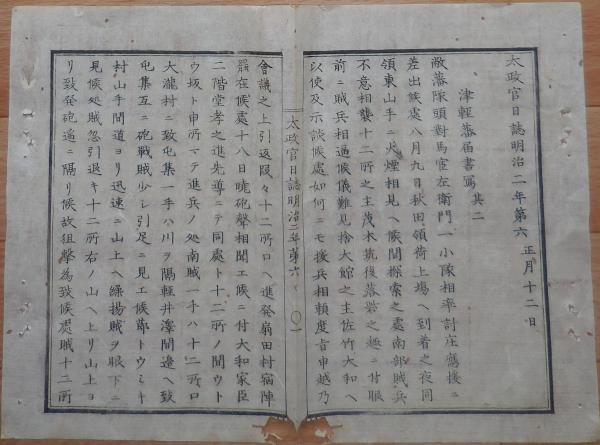 太政官日誌明治二年第六 正月十二日
津輕藩届書寫 其二
敝藩隊頭對馬官左衛門一小隊相率討庄應援ニ
差出候處八月九日秋田領荷上場ヘ到着之夜同
領東山手ニ火煙相見ヘ候間探索之處南部賊兵
不意相襲十二所之主茂木抗後落砦之趣ニ付眼
前ニ賊兵相逼候儀難見捨大館之主佐竹大和ヘ
以使及示談候處如何ニモ援兵相頼度旨申越乃
太政官日誌明治二年第六 一
會議之上引返段々十二所口ヘ進發扇田村宿陣
罷在候處十八日曉砲聲相聞エ候ニ付大和家臣
二階堂孝之進先導ニテ同處ト十二所ノ間ウト
ウ坂ト申所マテ進兵ノ処南賊一手ハ十二所口
大瀧村ニ致屯集一手ハ川ヲ隔輕井澤間邉ヘ致
屯集互ニ砲戰賊少シ引足ニ見エ候節トウミヤ
村山手間道ヨリ迅速ニ山上ヘ繰揚賊ヲ眼下ニ
見候処賊忽引退キ十二所右ノ山ヘ上リ山上ヨ
リ致発砲遙ニ隔リ候故狙撃為致候處賊十二所